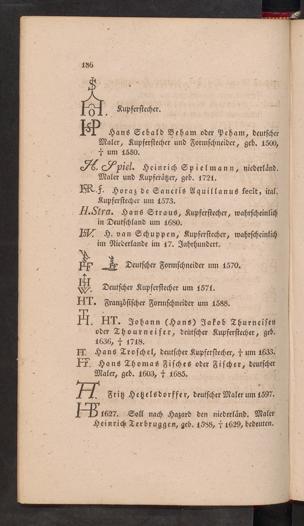 186
Kupferstecher.
Hans Sebald Beham oder Peham, deutscher
Maler, Kupferstecher und Formschneider, geb. 1500,
† um 1550.
H. Spiel. Heinrich Spielmann, niederländ.
Maler und Kupferätzer, geb. 1721.
f. Horaz de Sanctis Aquillanus fecit, ital.
Kupferstecher um 1573.
H.Stra. Hans Straus, Kupferstecher, wahrscheinlich
in Deutschland um 1680.
H. van Schuppen, Kupferstecher, wahrscheinlich
im Niederlande im 17. Jahrhundert.
Deutscher Formschneider um 1570.
Deutscher Kupferstecher um 1571.
HT. Französischer Formschneider um 1588.
HT. Johann (Hans) Jakob Thurneisen
oder Thourneiser, deutscher Kupferstecher, geb.
1636, † 1718.
Hans Troschel, deutscher Kupferstecher, † um 1633.
Hans Thomas Fisches oder Fischer, deutscher
Maler, geb. 1603, † 1685.
Fritz Hetzelsdorffer, deutscher Maler um 1597.
1627. Soll nach Hazard den niederländ. Maler
Heinrich Terbruggen, geb. 1588, † 1629, bedeuten.